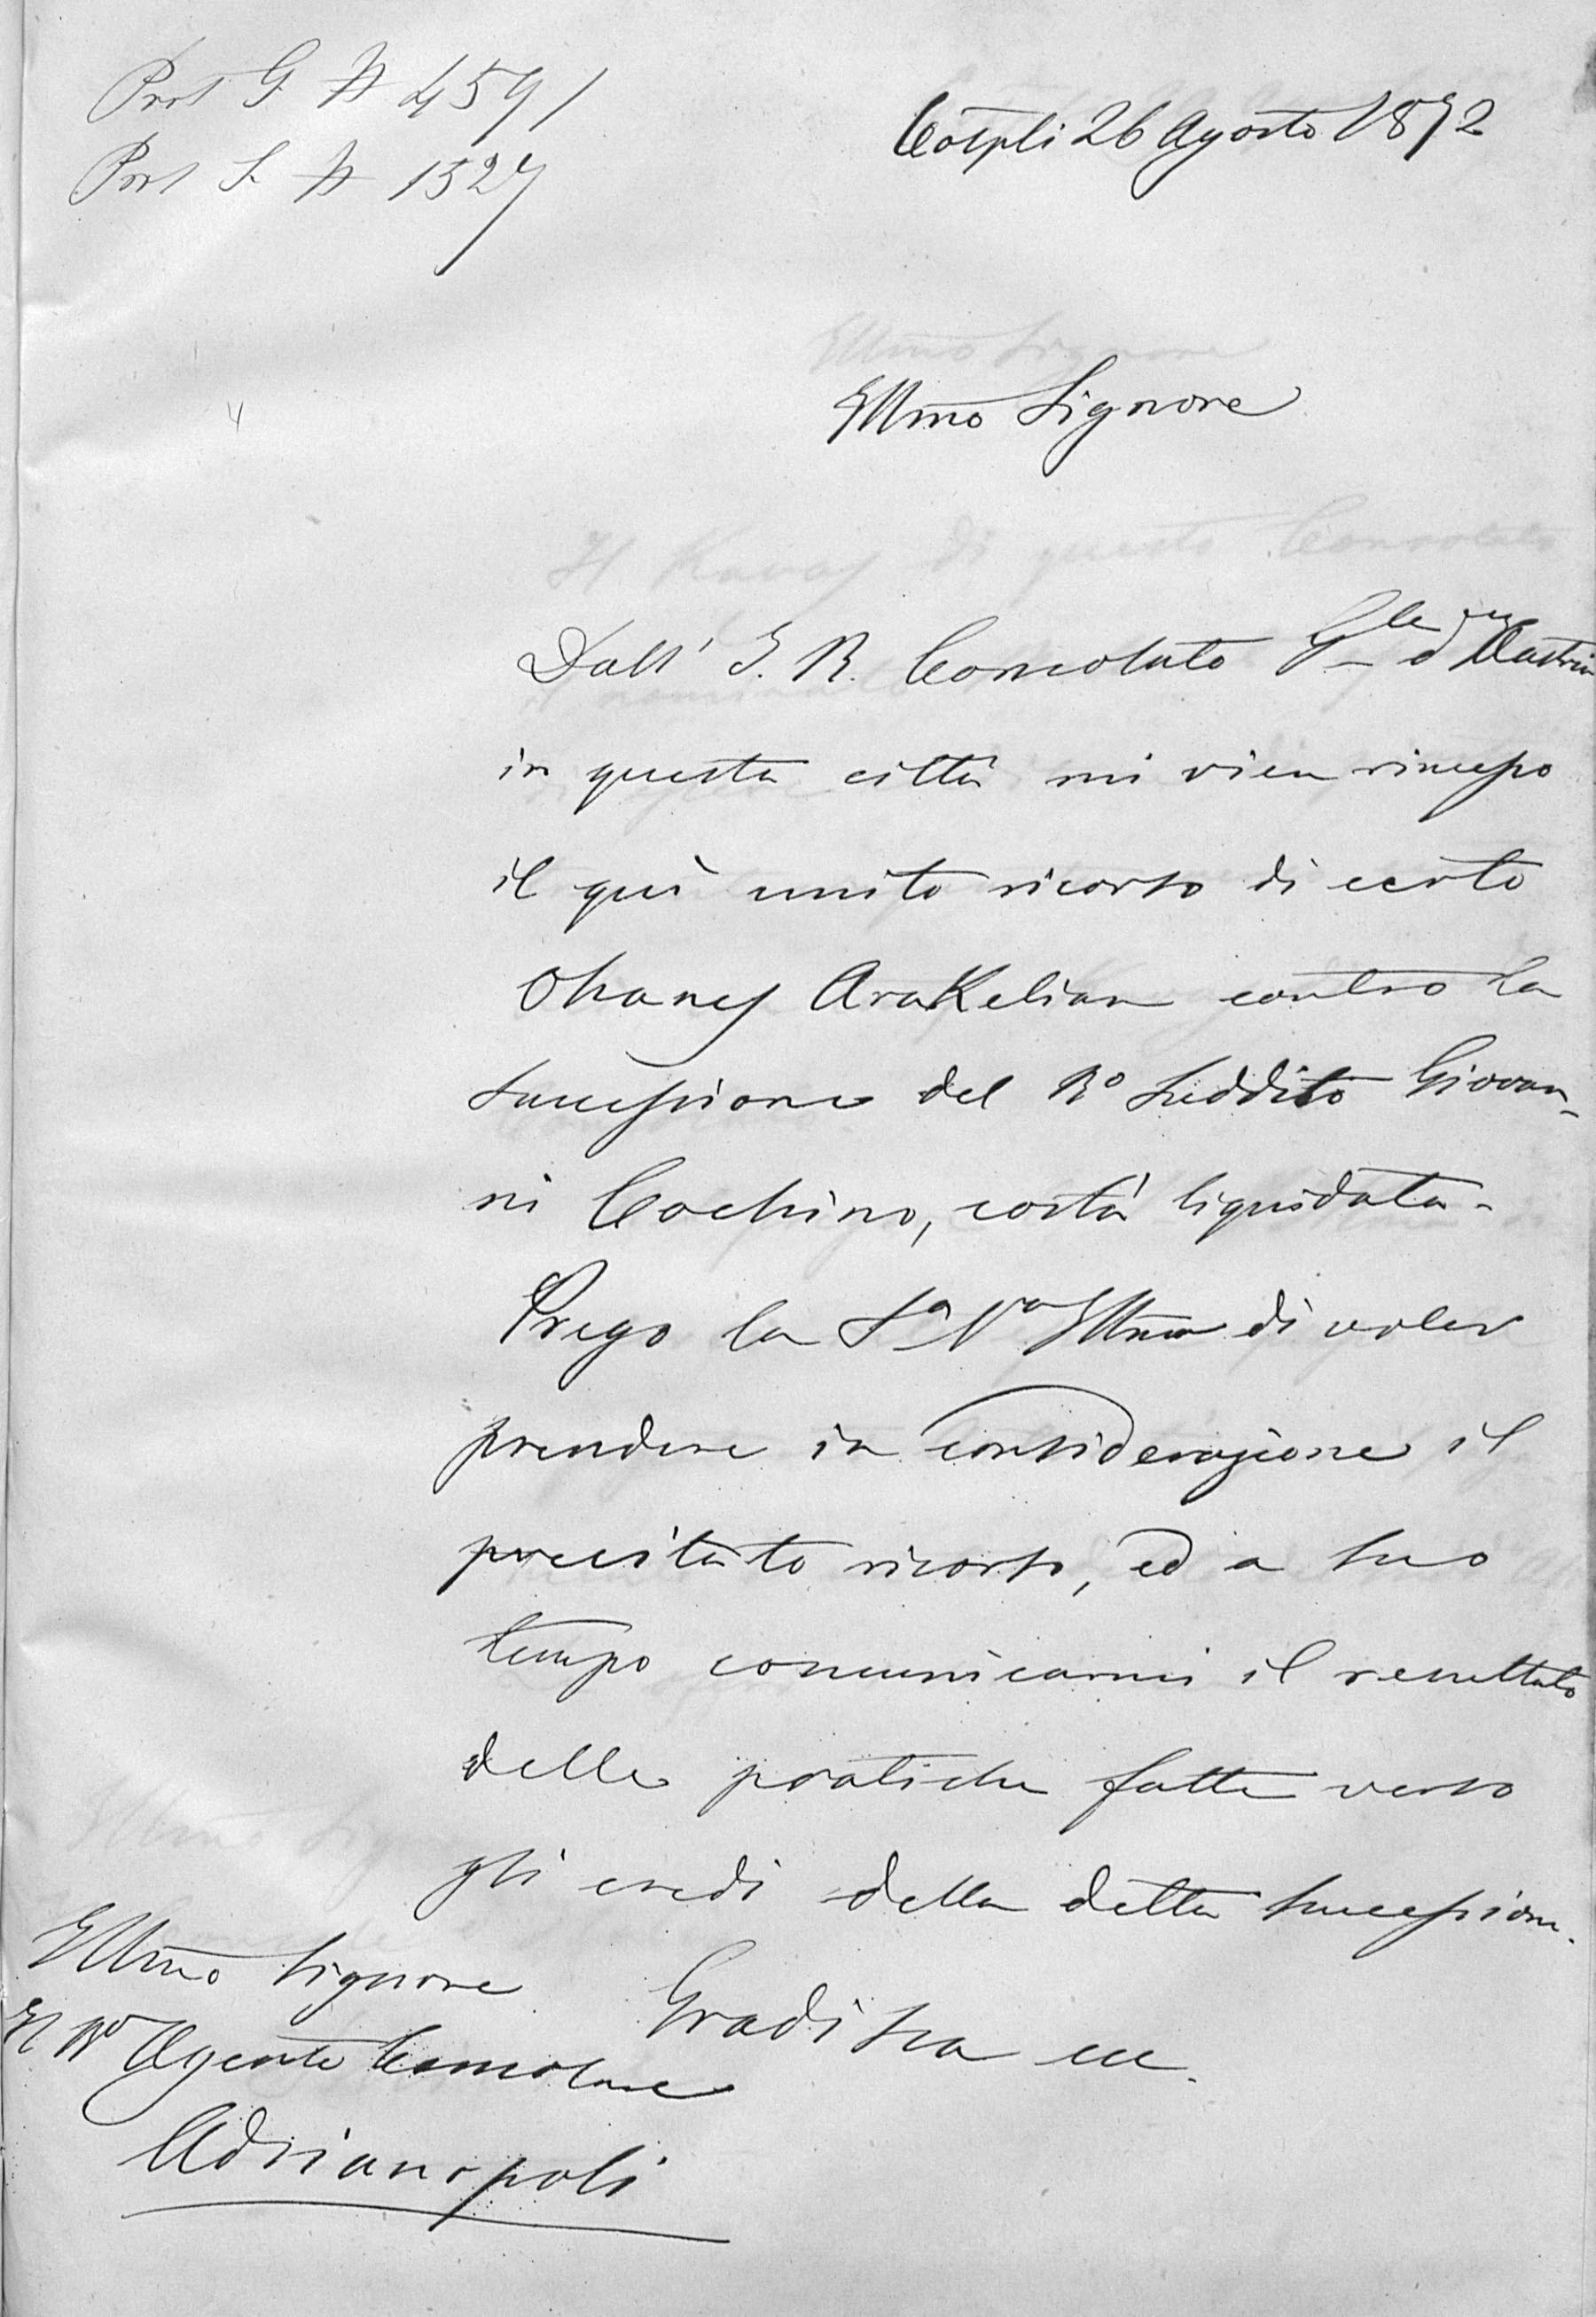 Prot G. N 4591
Prot S. N 1527
Cospli 26 Agosto 1872
Illmo Signore
Dall' I. R. Consolato Gle d' Austria
in questa città mi vien rimesso
il quì unito ricorso di certo
Ohanes Arakelian contro la
successione del Ro Suddito Giovan-
ni Cochino, costà liquidata.
Prego la Sa Va Illma di voler
prendere in considerazione il
precitato ricorso, ed a suo
tempo comunicarmi il resultato
delle pratiche fatte verso
gli eredi della detta successione.
Gradisca ecc.
Illmo Signore
Il Ro Agente Consolare
Adrianopoli